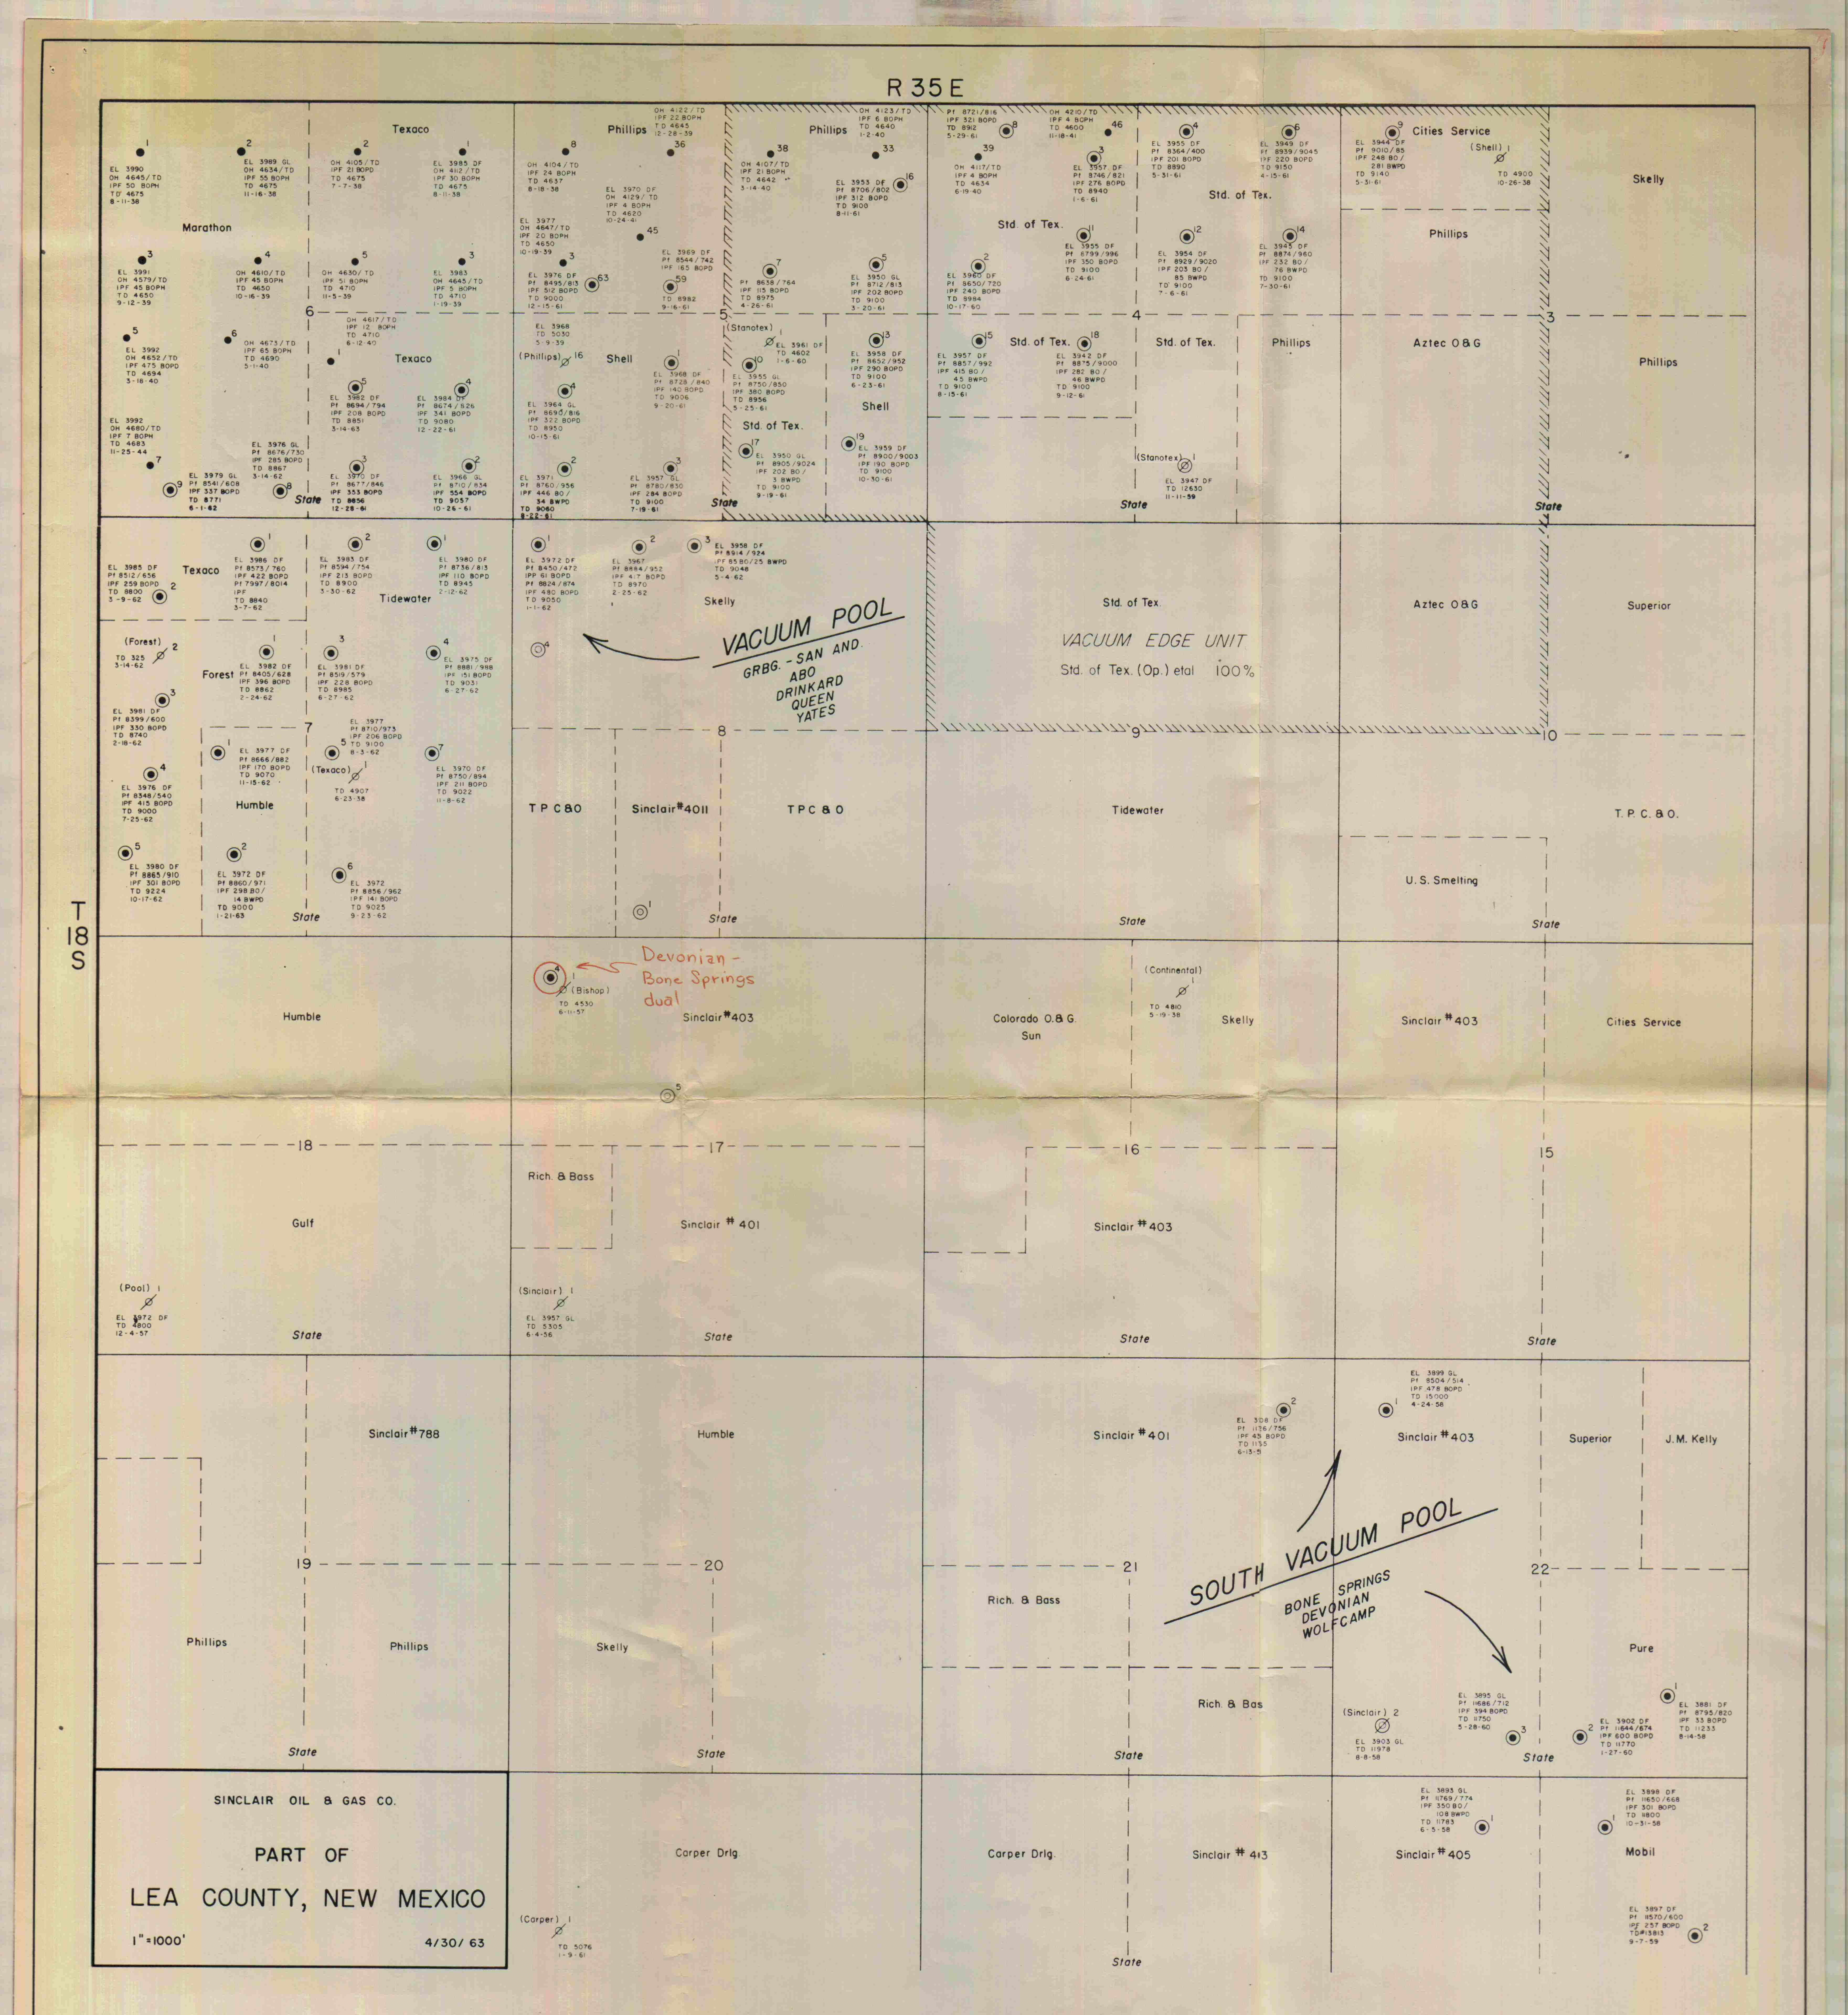 R 35 E
T
18
S
Texaco
Phillips
Phillips
Cities Service
Skelly
Marathon
Std. of Tex.
Std. of Tex.
Phillips
1
EL 3990
OH 4645/TD
IPF 50 BOPH
TD 4675
8-11-38
2
EL 3989 GL
OH 4634/TD
IPF 55 BOPH
TD 4675
11-16-38
2
OH 4105/TD
IPF 21 BOPD
TD 4675
7-7-38
1
EL 3985 DF
OH 4112/TD
IPF 30 BOPH
TD 4675
8-11-38
8
OH 4104/TD
IPF 24 BOPH
TD 4637
8-18-38
OH 4122/TD
IPF 22 BOPH
TD 4645
12-28-39
36
38
OH 4107/TD
IPF 21 BOPH
TD 4642
3-14-40
OH 4123/TD
IPF 6 BOPH
TD 4640
1-2-40
33
16
EL 3953 DF
Pf 8706/802
IPF 312 BOPD
TD 9100
8-11-61
Pf 8721/816
IPF 321 BOPD
TD 8912
5-29-61
8
OH 4210/TD
IPF 4 BOPH
TD 4600
11-18-41
46
39
OH 4117/TD
IPF 4 BOPH
TD 4634
6-19-40
3
EL 3957 DF
Pf 8746/821
IPF 276 BOPD
TD 8940
1-6-61
4
EL 3955 DF
Pf 8364/400
IPF 201 BOPD
TD 8890
5-31-61
6
EL 3949 DF
Pf 8939/9045
IPF 220 BOPD
TD 9150
4-15-61
9
EL 3944 DF
Pf 9010/85
IPF 248 BO/
281 BWPD
TD 9140
5-31-61
(Shell) 1
TD 4900
10-26-38
3
EL 3991
OH 4579/TD
IPF 45 BOPH
TD 4650
9-12-39
4
OH 4610/TD
IPF 45 BOPH
TD 4650
10-16-39
5
OH 4630/TD
IPF 51 BOPH
TD 4710
11-5-39
3
EL 3983
OH 4645/TD
IPF 5 BOPH
TD 4710
1-19-39
EL 3977
OH 4647/TD
IPF 20 BOPH
TD 4650
10-19-39
3
EL 3970 DF
OH 4129/TD
IPF 4 BOPH
TD 4620
10-24-41
45
EL 3976 DF
Pf 8495/813
IPF 312 BOPD
TD 9000
12-15-61
63
EL 3969 DF
Pf 8544/742
IPF 165 BOPD
59
TD 8982
9-16-61
7
Pf 8638/764
IPF 115 BOPD
TD 8975
4-26-61
5
EL 3950 GL
Pf 8712/813
IPF 202 BOPD
TD 9100
3-20-61
2
EL 3960 DF
Pf 8650/720
IPF 240 BOPD
TD 8984
10-17-60
11
EL 3955 DF
Pf 8799/996
IPF 350 BOPD
TD 9100
6-24-61
12
EL 3954 DF
Pf 8929/9020
IPF 203 BO/
85 BWPD
TD 9100
7-6-61
14
EL 3945 DF
Pf 8874/960
IPF 232 BO/
76 BWPD
TD 9100
7-30-61
6
5
4
3
5
EL 3992
OH 4652/TD
IPF 475 BOPD
TD 4694
3-18-40
6
OH 4673/TD
IPF 65 BOPH
TD 4690
5-1-40
OH 4617/TD
IPF 12 BOPH
TD 4710
6-12-40
1
Texaco
EL 3968
TD 5030
5-9-39
(Phillips) 16
Shell
1
EL 3968 DF
Pf 8728/840
IPF 140 BOPD
TD 9006
9-20-61
(Stanotex) 1
EL 3961 DF
TD 4602
1-6-60
10
EL 3955 GL
Pf 8750/850
IPF 380 BOPD
TD 8956
5-25-61
13
EL 3958 DF
Pf 8652/952
IPF 290 BOPD
TD 9100
6-23-61
Shell
15
EL 3957 DF
Pf 8857/992
IPF 415 BO/
45 BWPD
TD 9100
8-15-61
Std. of Tex.
18
EL 3942 DF
Pf 8875/9000
IPF 282 BO/
46 BWPD
TD 9100
9-12-61
Std. of Tex.
Phillips
Aztec O&G
Phillips
5
EL 3982 DF
Pf 8694/794
IPF 208 BOPD
TD 8851
3-14-63
4
EL 3984 DF
Pf 8674/826
IPF 341 BOPD
TD 9080
12-22-61
4
EL 3964 GL
Pf 8690/816
IPF 372 BOPD
TD 8950
10-15-61
Std. of Tex.
EL 3992
OH 4680/TD
IPF 7 BOPH
TD 4683
11-25-44
7
EL 3976 GL
Pf 8676/730
IPF 285 BOPD
TD 8867
3-14-62
8
9
EL 3979 GL
Pf 8541/608
IPF 337 BOPD
TD 8771
6-1-62
State
3
EL 3970 DF
Pf 8677/846
IPF 353 BOPD
TD 8856
12-28-61
2
EL 3966 GL
Pf 8710/834
IPF 554 BOPD
TD 9057
10-26-61
2
EL 3971
Pf 8760/956
IPF 446 BO/
34 BWPD
TD 9060
8-22-61
3
EL 3957 GL
Pf 8780/830
IPF 284 BOPD
TD 9100
7-19-61
State
17
EL 3950 GL
Pf 8905/9024
IPF 202 BO/
3 BWPD
TD 9100
9-19-61
19
EL 3959 DF
Pf 8900/9003
IPF 190 BOPD
TD 9100
10-30-61
(Stanotex) 1
EL 3947 DF
TD 12630
11-11-59
State
State
EL 3985 DF
Pf 8512/656
IPF 259 BOPD
TD 8800
3-9-62
2
Texaco
1
EL 3986 DF
Pf 8573/760
IPF 422 BOPD
Pf 7997/8014
IPF
TD 8840
3-7-62
2
EL 3983 DF
Pf 8594/754
IPF 213 BOPD
TD 8900
3-30-62
1
EL 3980 DF
Pf 8736/813
IPF 110 BOPD
TD 8945
2-12-62
Tidewater
1
EL 3972 DF
Pf 8450/472
IPP 61 BOPD
Pf 8824/874
IPF 480 BOPD
TD 9050
1-1-62
2
EL 3967
Pf 8884/952
IPF 417 BOPD
TD 8970
2-25-62
3
EL 3958 DF
Pf 8914/924
IPF 85 BO/25 BWPD
TD 9048
5-4-62
Skelly
Std. of Tex.
Aztec O&G
Superior
VACUUM POOL
GRBG. - SAN AND.
ABO
DRINKARD
QUEEN
YATES
VACUUM EDGE UNIT
Std. of Tex. (Op.) etal 100%
(Forest) 2
TD 325
3-14-62
Forest
1
EL 3982 DF
Pf 8405/628
IPF 396 BOPD
TD 8862
2-24-62
3
EL 3981 DF
Pf 8519/579
IPF 228 BOPD
TD 8985
6-27-62
4
EL 3975 DF
Pf 8881/988
IPF 151 BOPD
TD 9031
6-27-62
4
3
EL 3981 DF
Pf 8399/600
IPF 330 BOPD
TD 8740
2-18-62
7
8
9
10
1
EL 3977 DF
Pf 8666/882
IPF 170 BOPD
TD 9070
11-15-62
EL 3977
Pf 8710/973
IPF 206 BOPD
TD 9100
8-3-62
5
(Texaco) 1
TD 4907
6-23-38
7
EL 3970 DF
Pf 8750/894
IPF 211 BOPD
TD 9022
11-8-62
4
EL 3976 DF
Pf 8348/540
IPF 415 BOPD
TD 9000
7-25-62
Humble
T P C&O
Sinclair #4011
T P C & O
Tidewater
T. P. C. & O.
5
EL 3980 DF
Pf 8865/910
IPF 301 BOPD
TD 9224
10-17-62
2
EL 3972 DF
Pf 8860/971
IPF 298 BO/
14 BWPD
TD 9000
1-21-63
6
EL 3972
Pf 8856/962
IPF 141 BOPD
TD 9025
9-23-62
U.S. Smelting
State
1
State
State
State
Devonian -
Bone Springs
dual
4
1
(Bishop)
TD 4530
6-11-57
Humble
Sinclair #403
Colorado O.& G.
Sun
(Continental)
1
TD 4810
5-19-38
Skelly
Sinclair #403
Cities Service
5
18
17
16
15
Rich. & Bass
Gulf
Sinclair # 401
Sinclair #403
(Pool) 1
EL 3972 DF
TD 4800
12-4-57
State
(Sinclair) 1
EL 3957 GL
TD 5305
6-4-56
State
State
State
Sinclair #788
Humble
Sinclair #401
2
EL 308 DF
Pf 1136/756
IPF 45 BOPD
TD 1155
6-13-5
EL 3899 GL
Pf 8504/514
IPF 478 BOPD
TD 15000
4-24-58
1
Sinclair #403
Superior
J.M. Kelly
SOUTH VACUUM POOL
BONE SPRINGS
DEVONIAN
WOLFCAMP
19
20
21
22
Rich. & Bass
Phillips
Phillips
Skelly
Pure
Rich. & Bas
(Sinclair) 2
EL 3903 GL
TD 11978
8-8-58
EL 3895 GL
Pf 11686/712
IPF 394 BOPD
TD 11750
5-28-60
3
2
EL 3902 DF
Pf 11644/674
IPF 600 BOPD
TD 11770
1-27-60
1
EL 3881 DF
Pf 8795/820
IPF 33 BOPD
TD 11233
8-14-58
State
State
State
State
SINCLAIR OIL & GAS CO.
PART OF
LEA COUNTY, NEW MEXICO
1"=1000'
4/30/63
Carper Drlg.
Carper Drlg.
Sinclair # 413
EL 3893 GL
Pf 11769/774
IPF 350 BO/
108 BWPD
TD 11783
6-5-58
1
Sinclair #405
EL 3898 DF
Pf 11650/668
IPF 301 BOPD
TD 11800
10-31-58
1
Mobil
(Carper) 1
TD 5076
1-9-61
EL 3897 DF
Pf 11570/600
IPF 257 BOPD
TD#13813
9-7-59
2
State